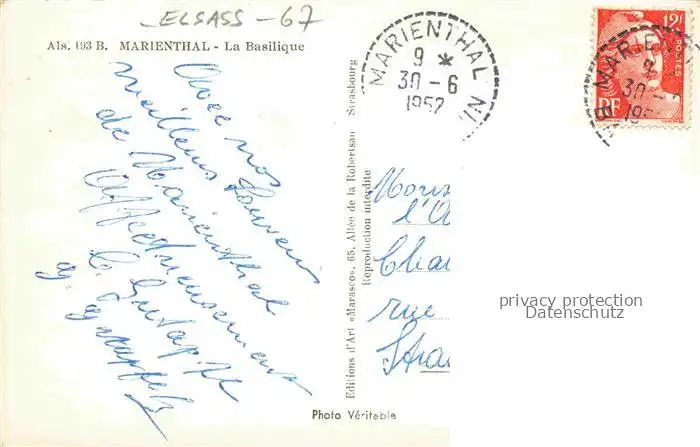 ELSASS - 67
Als. 193 B. MARIENTHAL - La Basilique
MARIENTHAL
9 *
30-6
1952
12F
POSTES
RF
MARIE
9
30-
195
Avec nos
meilleurs Souvenirs
de Marienthal
Affectueusement
Editions d'Art «Marasco», 65, Allée de la Robertsau Strasbourg
Reproduction interdite
l'A
Cha
rue
Stra
privacy protection
Datenschutz
Photo Véritable